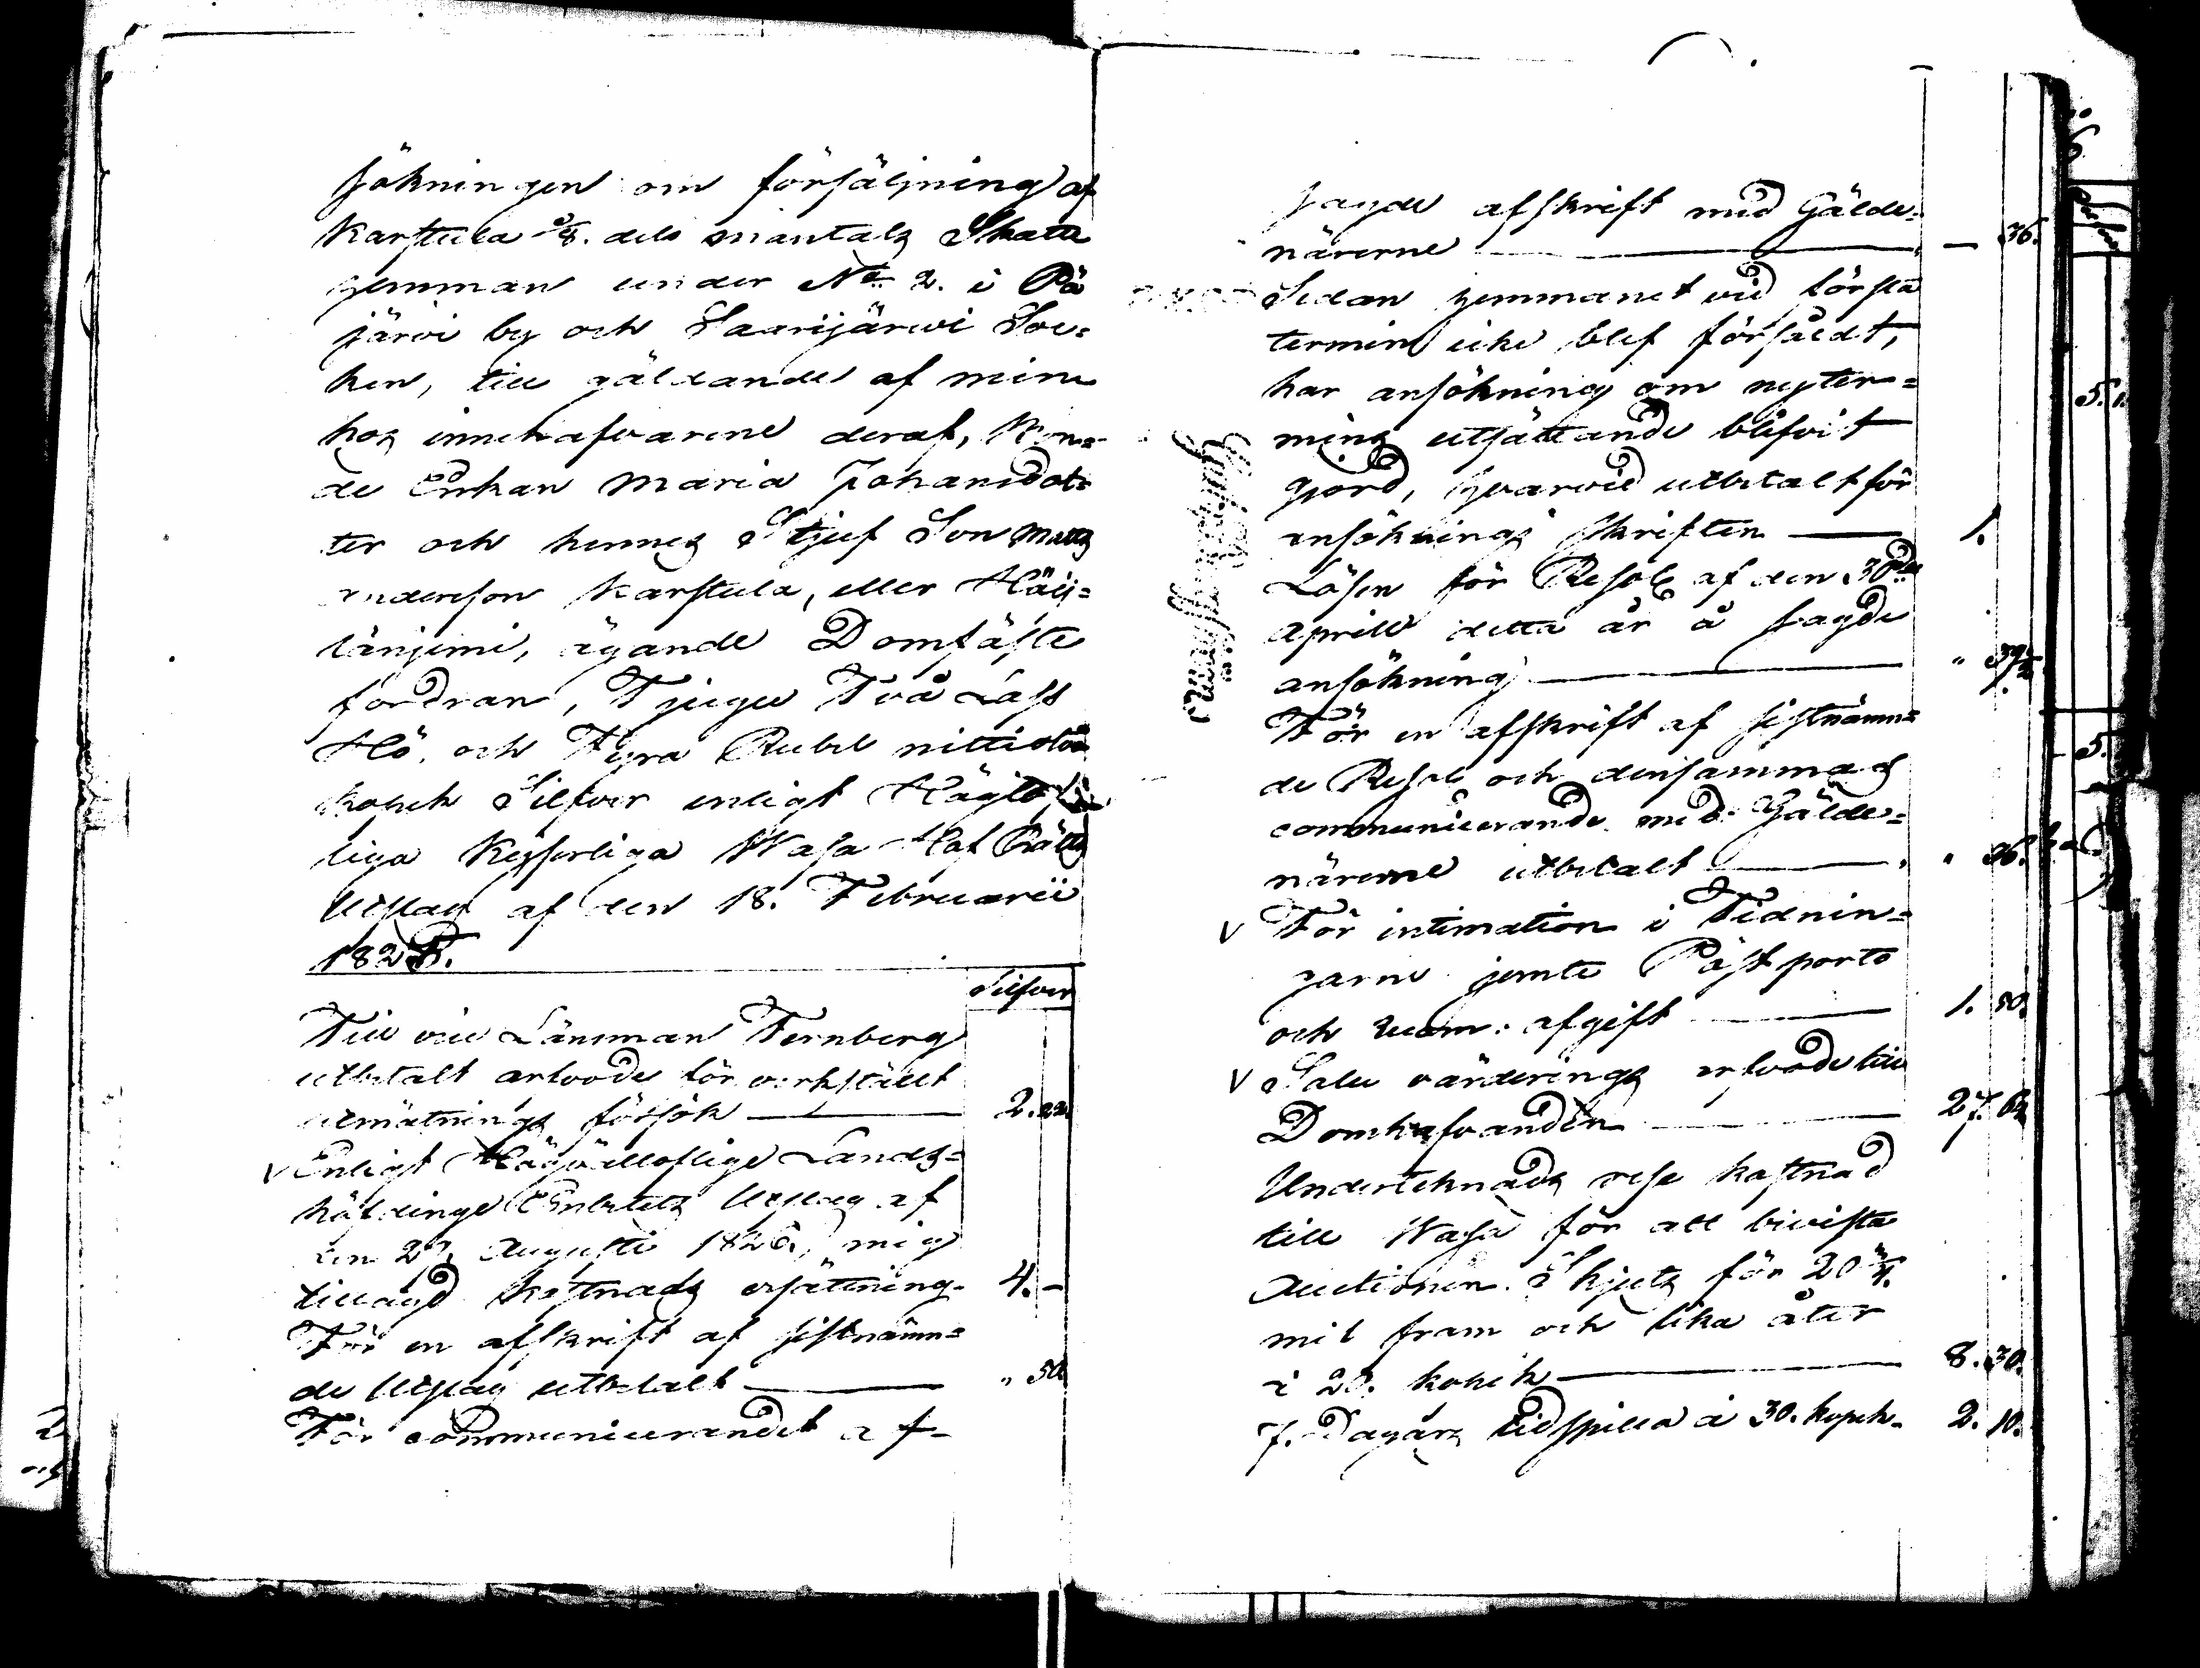 sökningen om försäljning af
Karstula 3/8. dels mantals Skatte
hemman under No 2. i Pä
järvi by och Saarijärvi Soc=
ken, till gäldande af min
hos innehafvarene deraf, Bon=
de Enkan Maria Johansdot=
ter och hennes Stjuf Son Matts
Andersson Karstula, eller
ägande Domfäste
fordran, Tjugu Två Lass
Hö, och Fyra Rubel nittiotvå
kopek Silfver enligt Höglof
liga Kejserliga Wasa Hof Rätts
Utslag af den 18. Februarii
Silfver
Till vice Länsman Fernberg
utbetalt arfvode för verkstäldt
utmätnings försök — 2. 22.
V Enligt Högvällofliga Lands=
höfdinge Embetets Utslag af
den 29 Augusti 1826, mig
tillagd kostnads ersättning. 4. –
För en afskrift af sistnämn=
de Utslag utbetalt — " 50
För communicerandet af
sagde afskrift med Gälde=
närerne — 36.
Sedan hemmanet vid första
termin icke blef försåldt,
har ansökning om ny ter=
mins utsättande blifvit
gjord, hvarvid utbetalt för
ansöknings skriften — 1.
Lösen för Resol af den 30de
April detta år å sagde
ansökning —
För en afskrift af sistnämn=
de Resol och densammas
communicerande med Gälde=
närerne utbetalt — " 36.
V För intimation i Tidnin=
garne jemte Påst porto
och afgift — 1. 50.
V Salu värderings arfvode till
Domhafvanden — 27.
Undertecknads rese kostnad
till Wasa för att bivista
Auctionen. Skjuts för 20 3/4.
mil fram och lika åter
à 20. kopek — 8. 30.
7. Dagars tidspillan à 30. kopek. 2. 10.